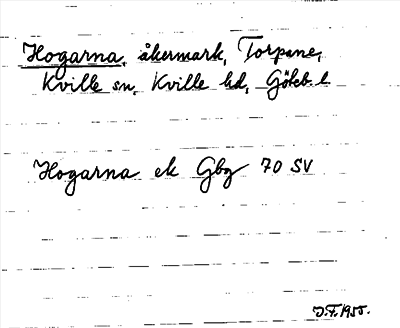 Hogarna, åkermark, Torpane,
Kville sn, Kville hd, Göteb. l
Hogarna ek Gbg 70 SV
J.F. 1955.